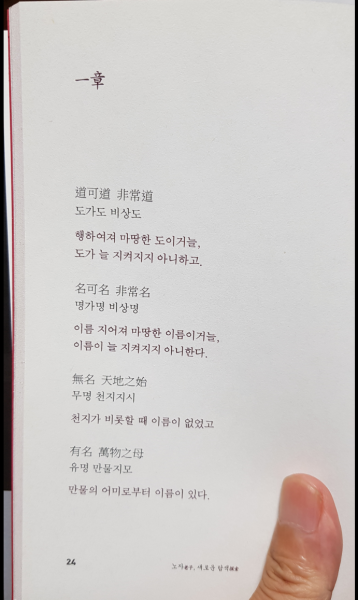 一章
道可道 非常道
도가도 비상도
행하여져 마땅한 도이거늘,
도가 늘 지켜지지 아니하고.
名可名 非常名
명가명 비상명
이름 지어져 마땅한 이름이거늘,
이름이 늘 지켜지지 아니한다.
無名 天地之始
무명 천지지시
천지가 비롯할 때 이름이 없었고
有名 萬物之母
유명 만물지모
만물의 어미로부터 이름이 있다.
24
노자老子, 새로운 탐색探索